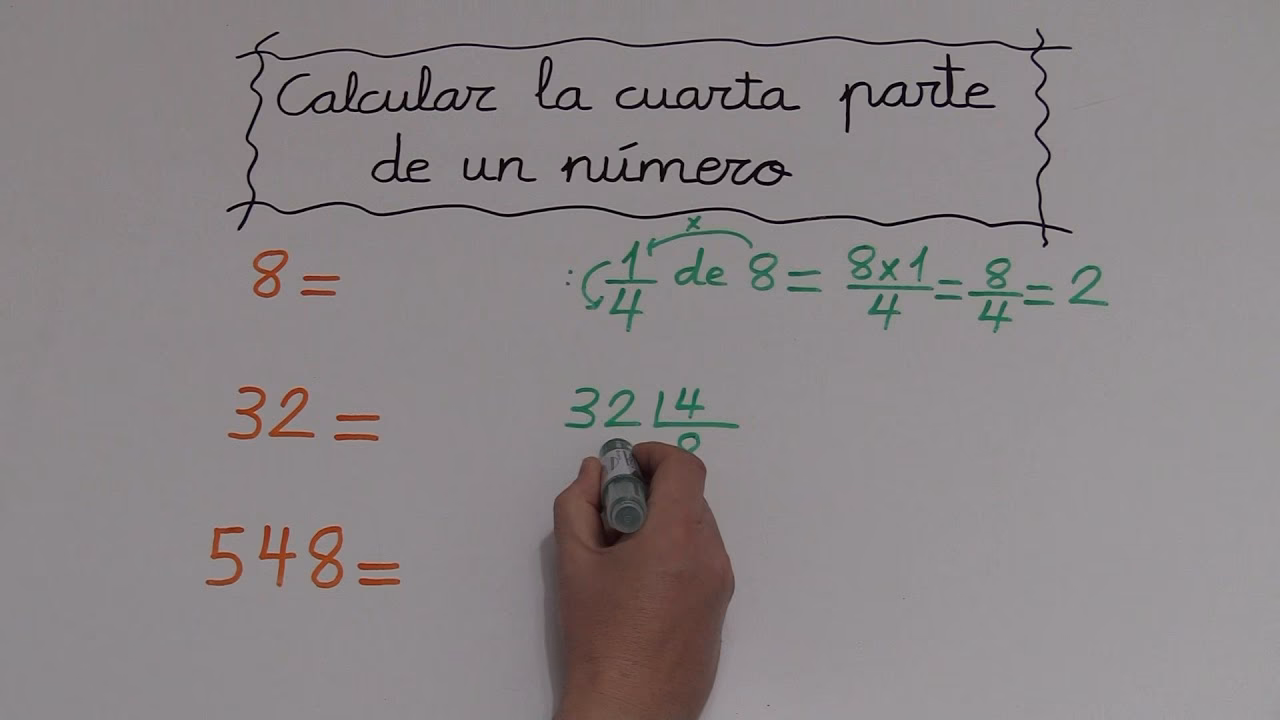 Calcular la cuarta parte
de un número
8 =
: 1/4 de 8 = 8x1/4 = 8/4 = 2
x
32 =
32 4
8
548 =